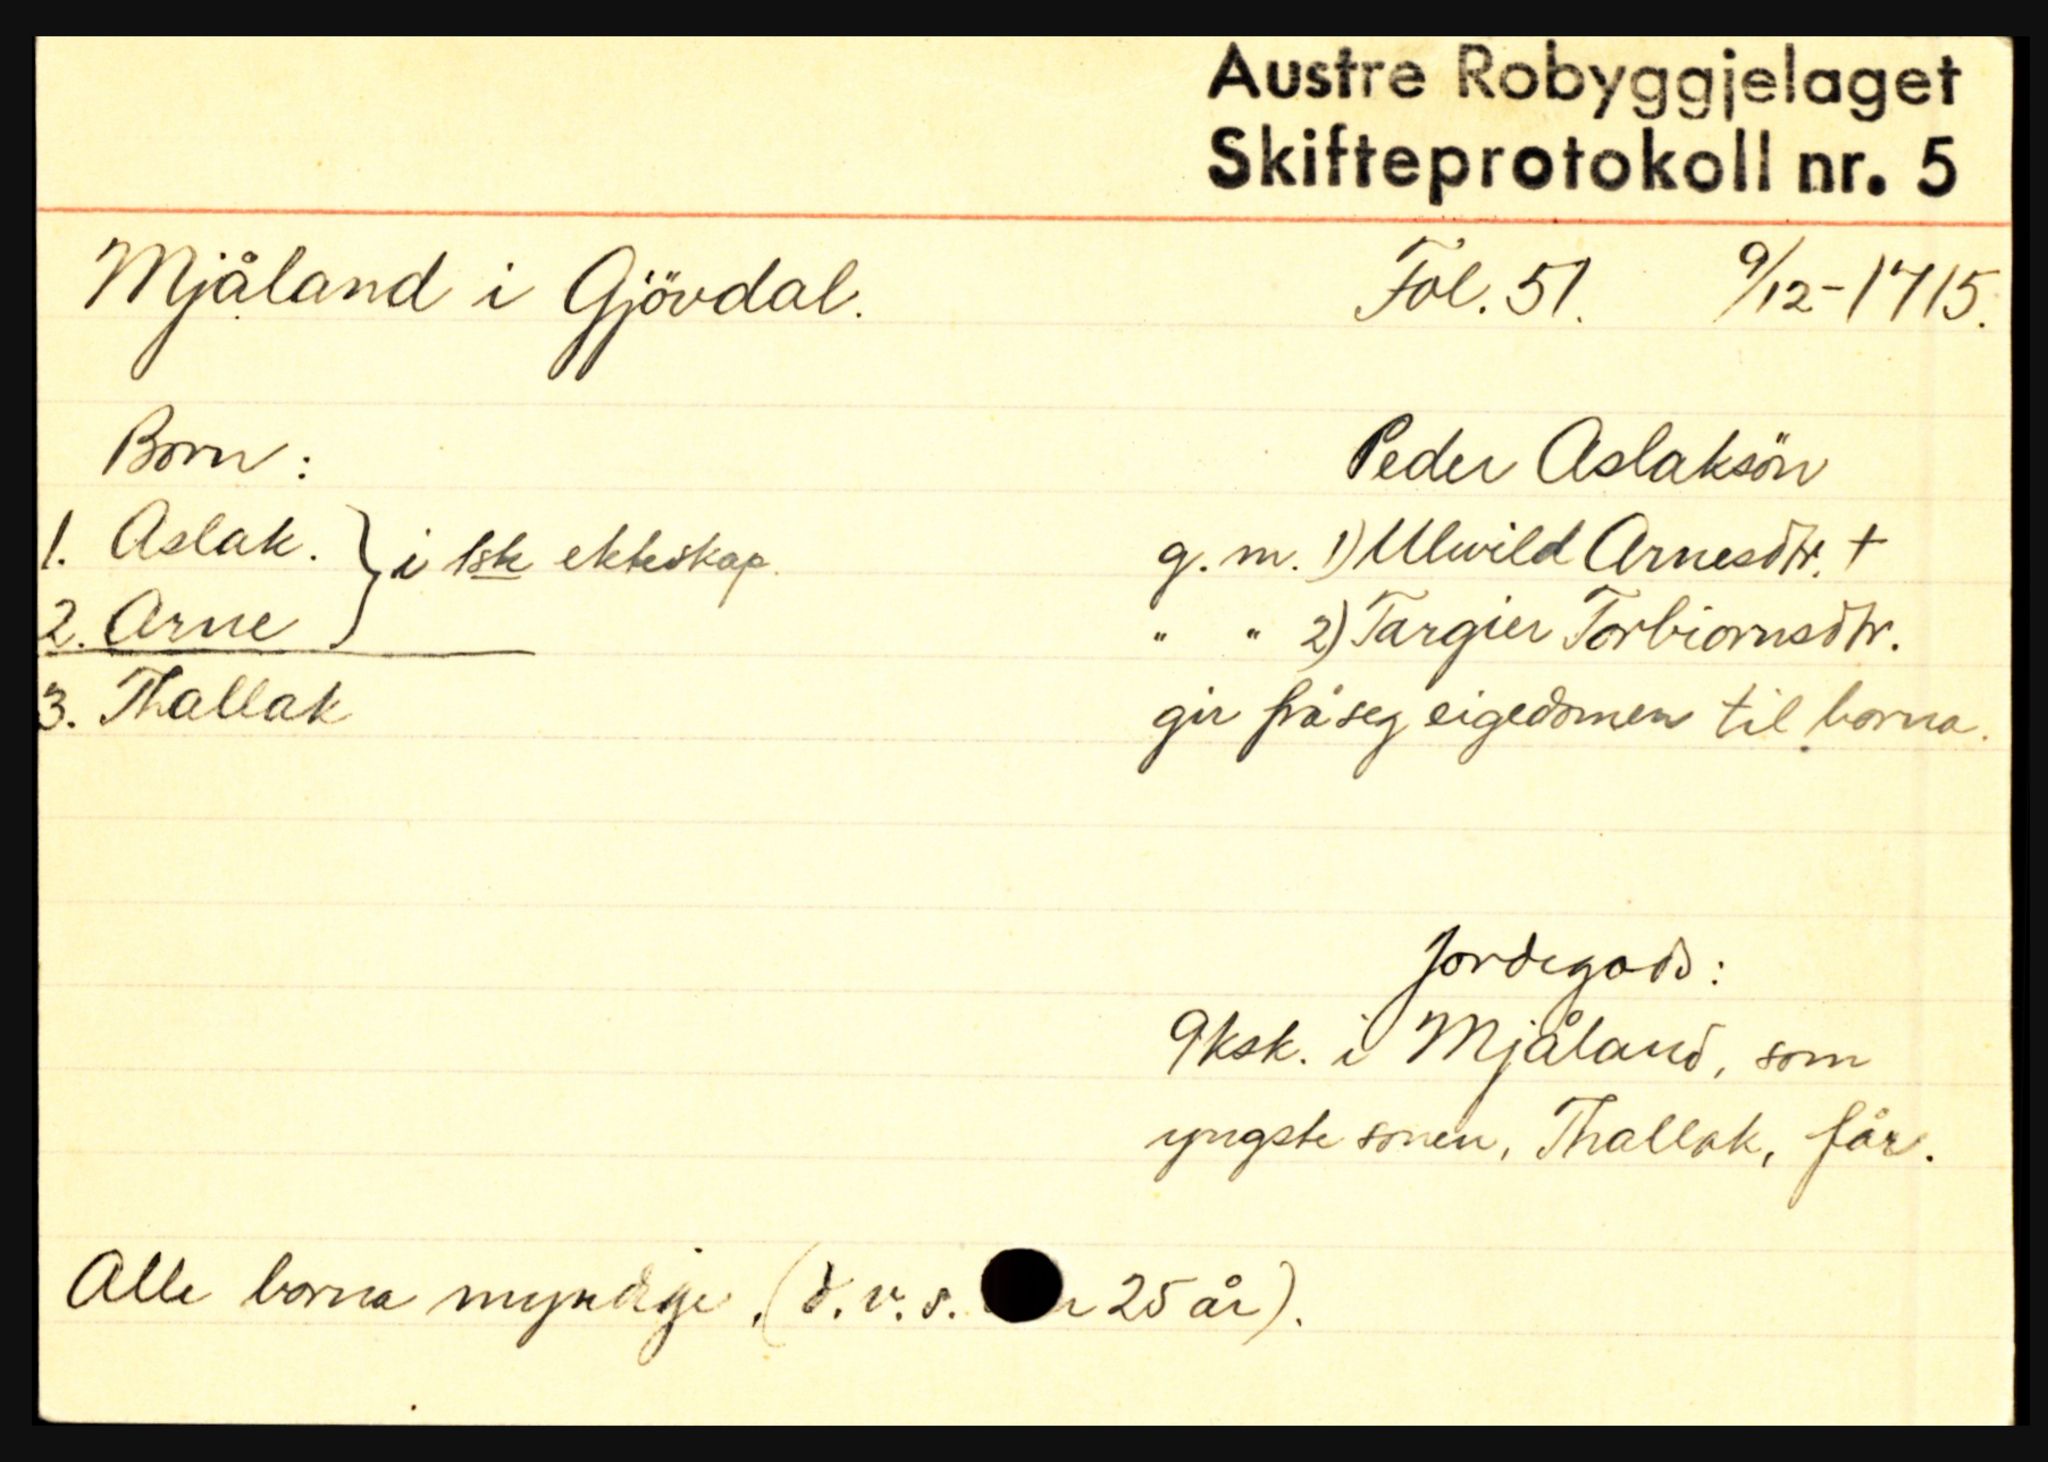 Austre Robyggjelaget
Skifteprotokoll nr. 5
Mjåland i Gjövdal.
Fol. 51. 9/12-1715.
Born:
1. Aslak. } i 1ste ekteskap.
2. Arne
3. Thallak
Peder Aslaksön
g. m. 1) Ulwild Arnesdtr. +
" " 2) Targier Torbiornsdtr.
gir frå seg eigedomen til borna.
Jordegods:
9 ksk. i Mjåland, som
yngste sonen, Thallak, får.
Alle borna myndige. (d. v. s. 25 år).